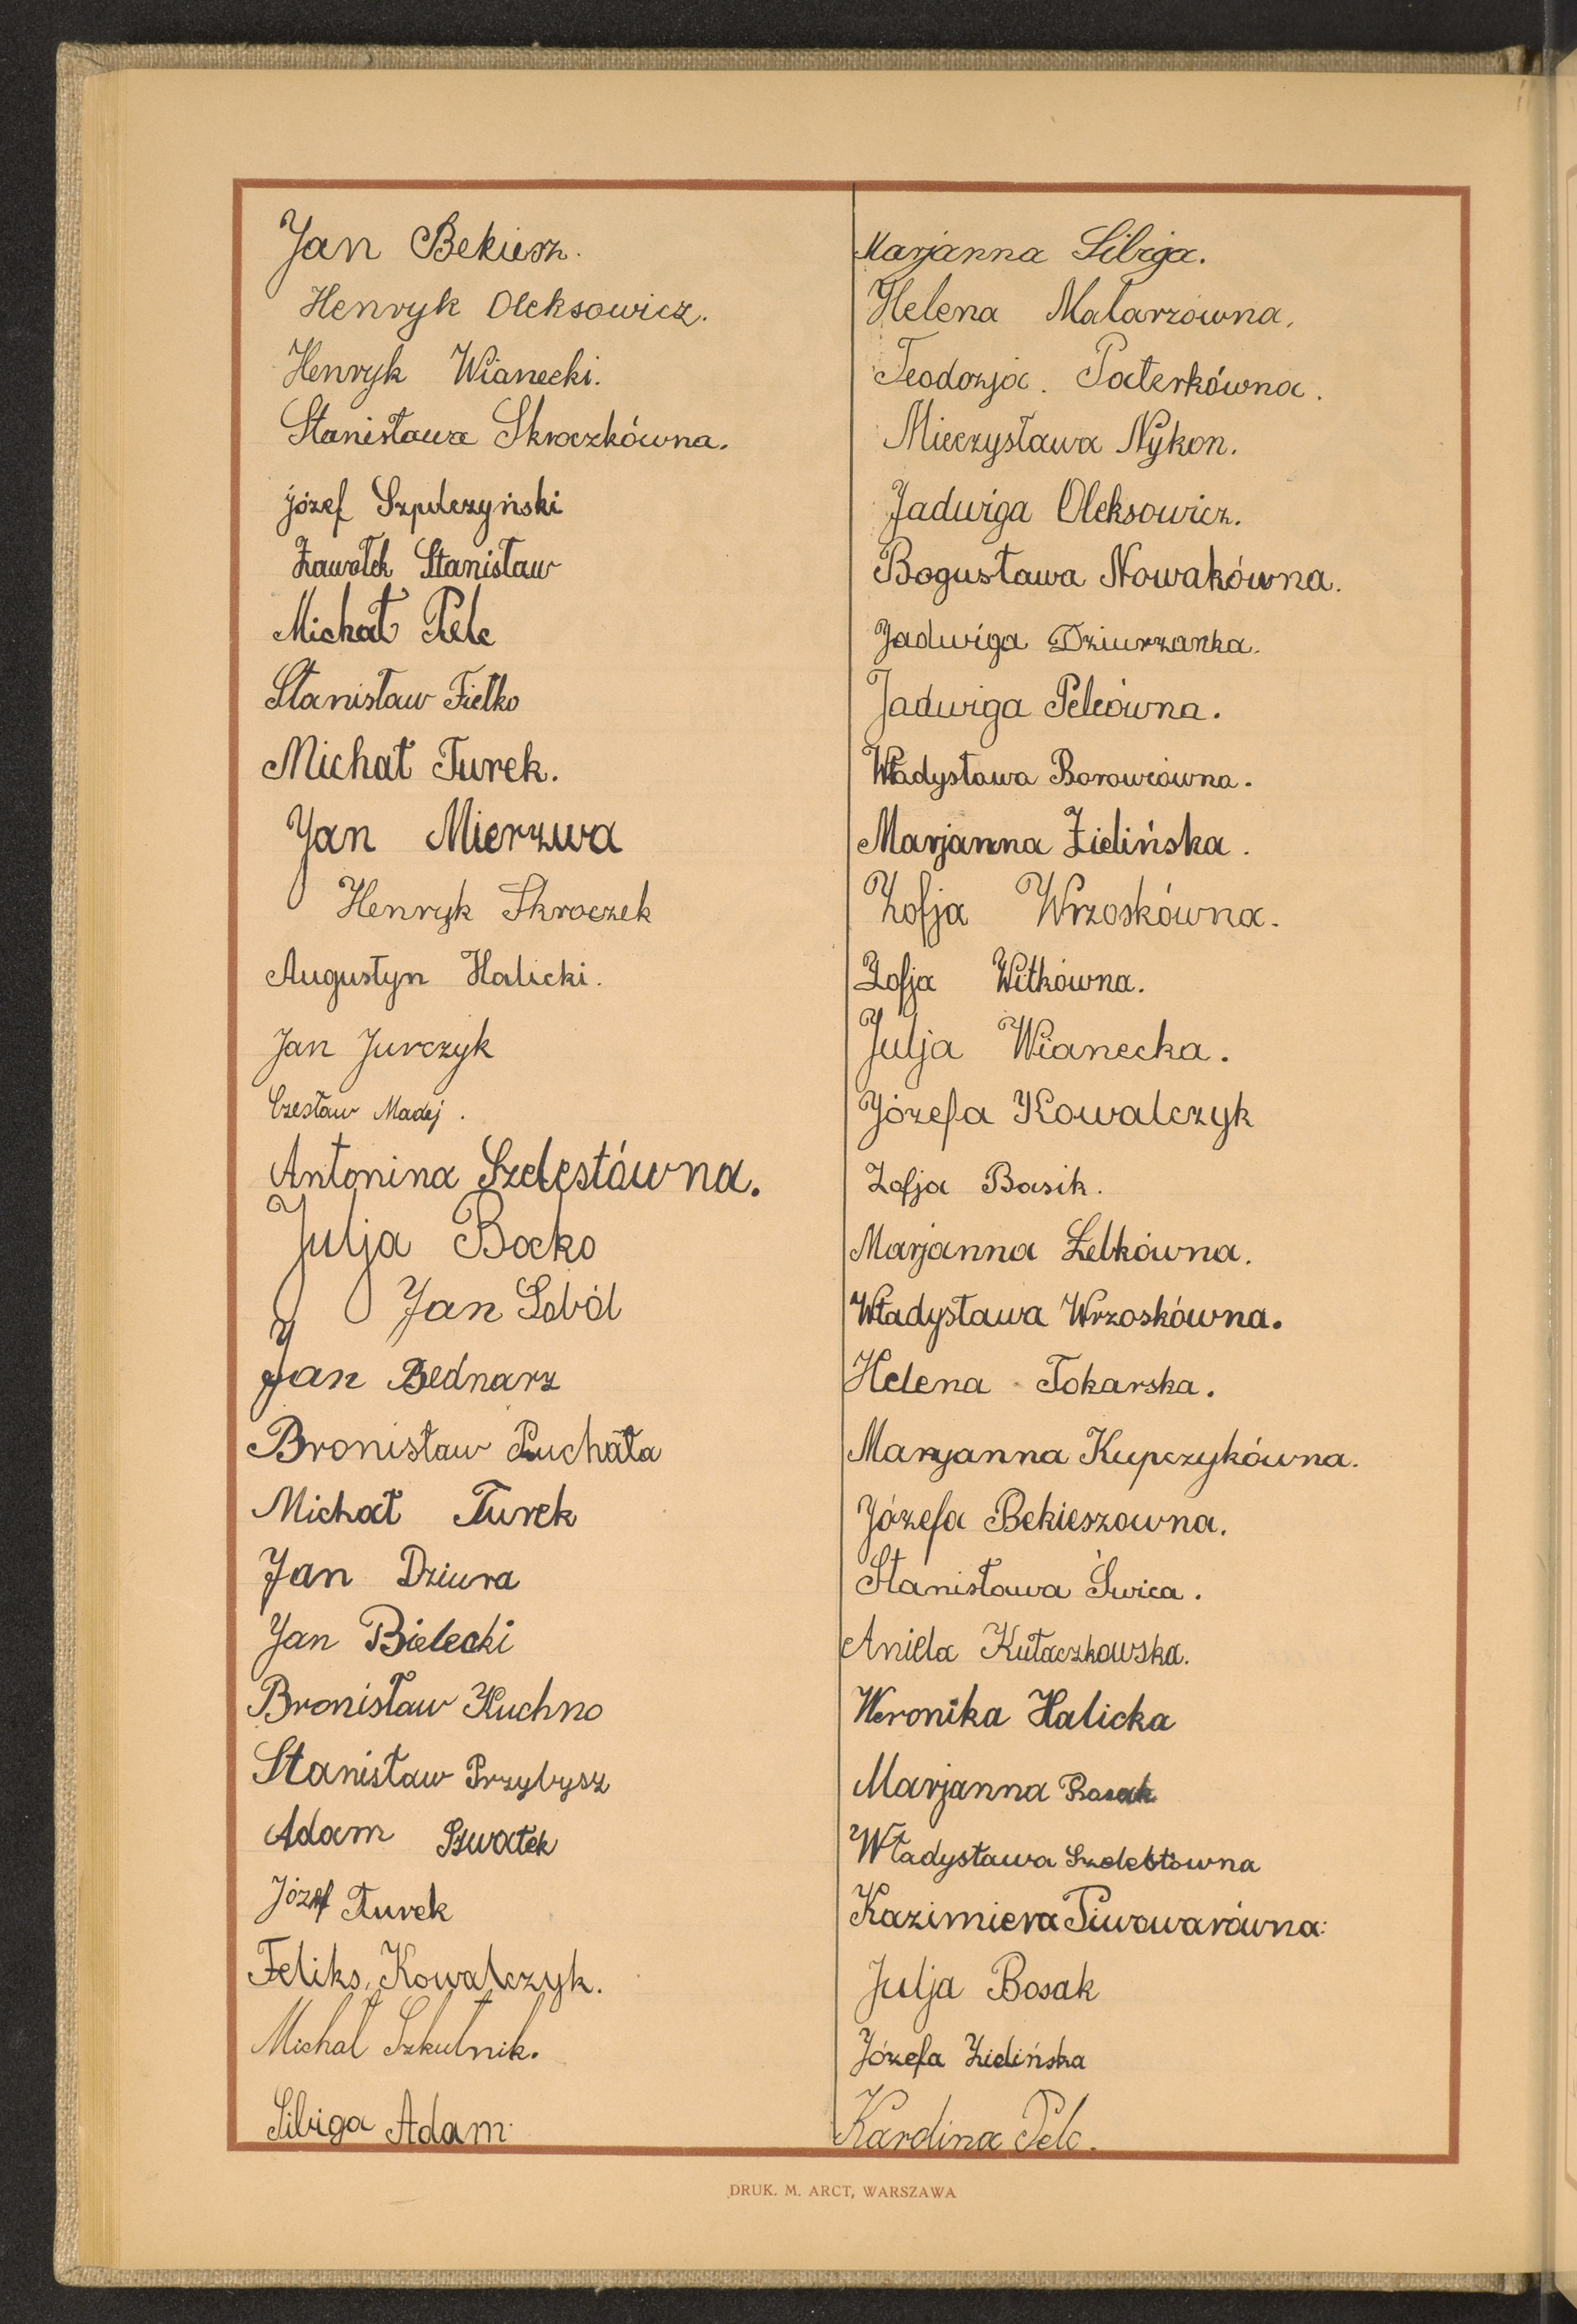 Jan Bekiesz.
Henryk Oleksowicz.
Henryk Wianecki.
Stanisława Skroczkówna.
Józef Szpulczyński
Zawałek Stanisław
Michał Pelc
Stanisław Fiełko
Michał Turek.
Jan Mierzwa
Henryk Skroczek
Augustyn Halicki.
Jan Jurczyk
Czesław Madej.
Antonina Szelestówna.
Julja Bocko
Jan Soból
Jan Bednarz
Bronisław Puchała
Michał Turek
Jan Dziura
Jan Bielecki
Bronisław Kuchno
Stanisław Przybysz
Adam
Józef Turek
Feliks Kowalczyk.
Michał Szkutnik.
Sibiga Adam.
Marjanna Sibiga.
Helena Malarzówna.
Teodozja. Paterkówna.
Mieczysława Nykon.
Jadwiga Oleksowicz.
Bogusława Nowakówna.
Jadwiga Dziurzanka.
Jadwiga Pelcówna.
Władysława Borowcówna.
Marjanna Zielińska.
Zofja Wrzoskówna.
Zofja Witkówna.
Julja Wianecka.
Józefa Kowalczyk
Zofja Basik.
Marjanna Żelkówna.
Władysława Wrzoskówna.
Helena Tokarska.
Marjanna Kupczykówna.
Józefa Bekieszowna.
Stanisława Świca.
Aniela Kułaczkowska.
Weronika Halicka
Marjanna Bosak
Władysława Szelestówna
Kazimiera Piwowarówna:
Julja Bosak
Józefa Zielińska
Karolina Pelc.
DRUK. M. ARCT, WARSZAWA